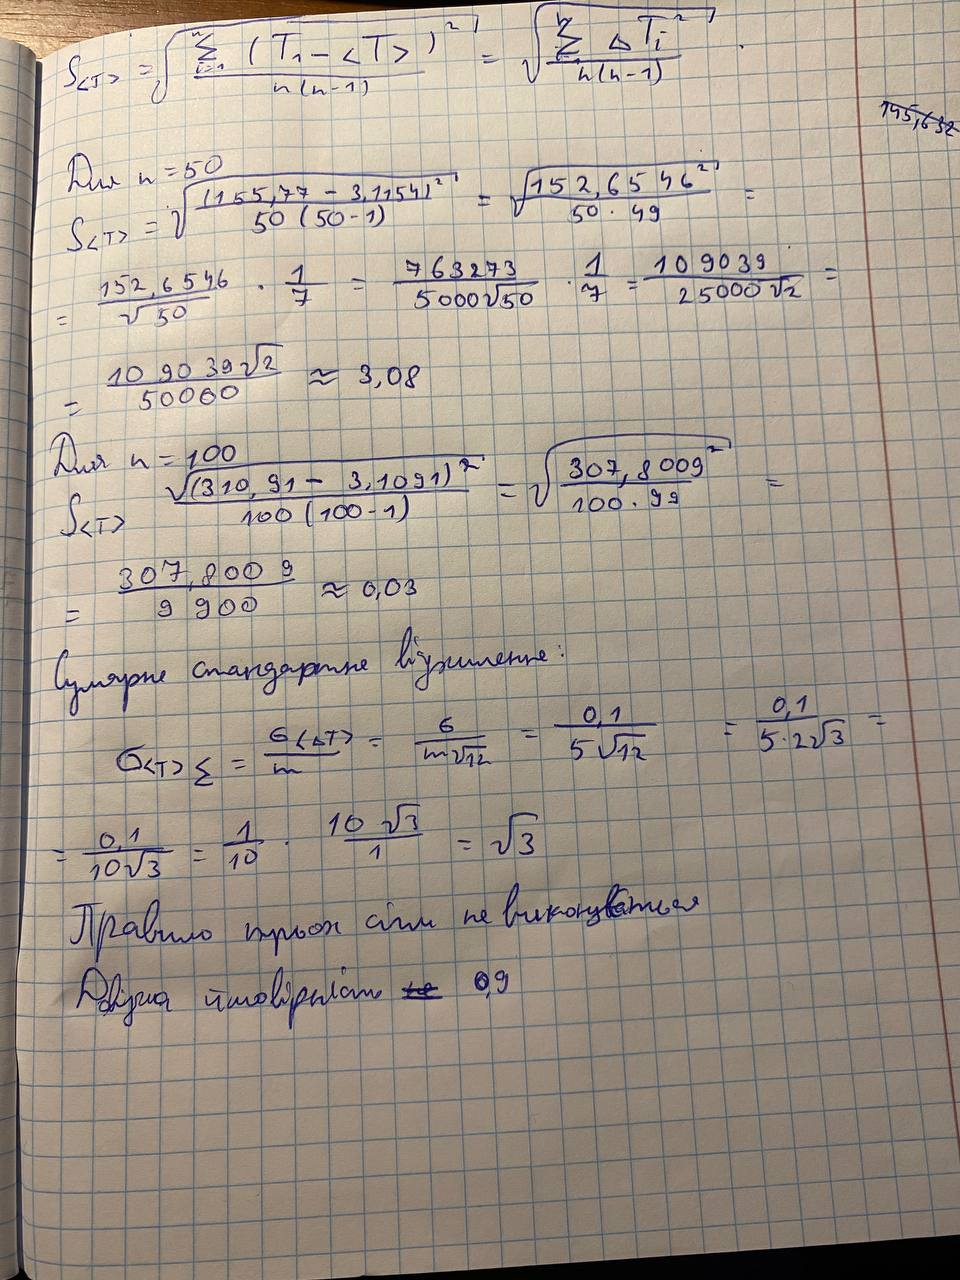 S<T> = √(∑ⁿᵢ₌₁ (T₁ - <T>)² / n(n-1)) = √(∑ⁿ ΔTᵢ² / n(n-1)).
145,632
Для n = 50
S<T> = √((155,77 - 3,1154)² / 50(50-1)) = √(152,6546² / 50·49) =
= 152,6546/√50 · 1/7 = 763273/5000√50 · 1/7 = 109039/25000√2 =
= 109039√2/50000 ≈ 3,08
Для n = 100
S<T> √(310,91 - 3,1091)²/100(100-1) = √(307,8009²/100·99) =
= 307,8009/9900 ≈ 0,03
Сумарне стандартне відхилення:
σ<T>Σ = σ<ΔT>/m = σ/m√12 = 0,1/5√12 = 0,1/5·2√3 =
= 0,1/10√3 = 1/10 · 10√3/1 = √3
Правило трьох сігм не виконується
Довірча ймовірність 0,9